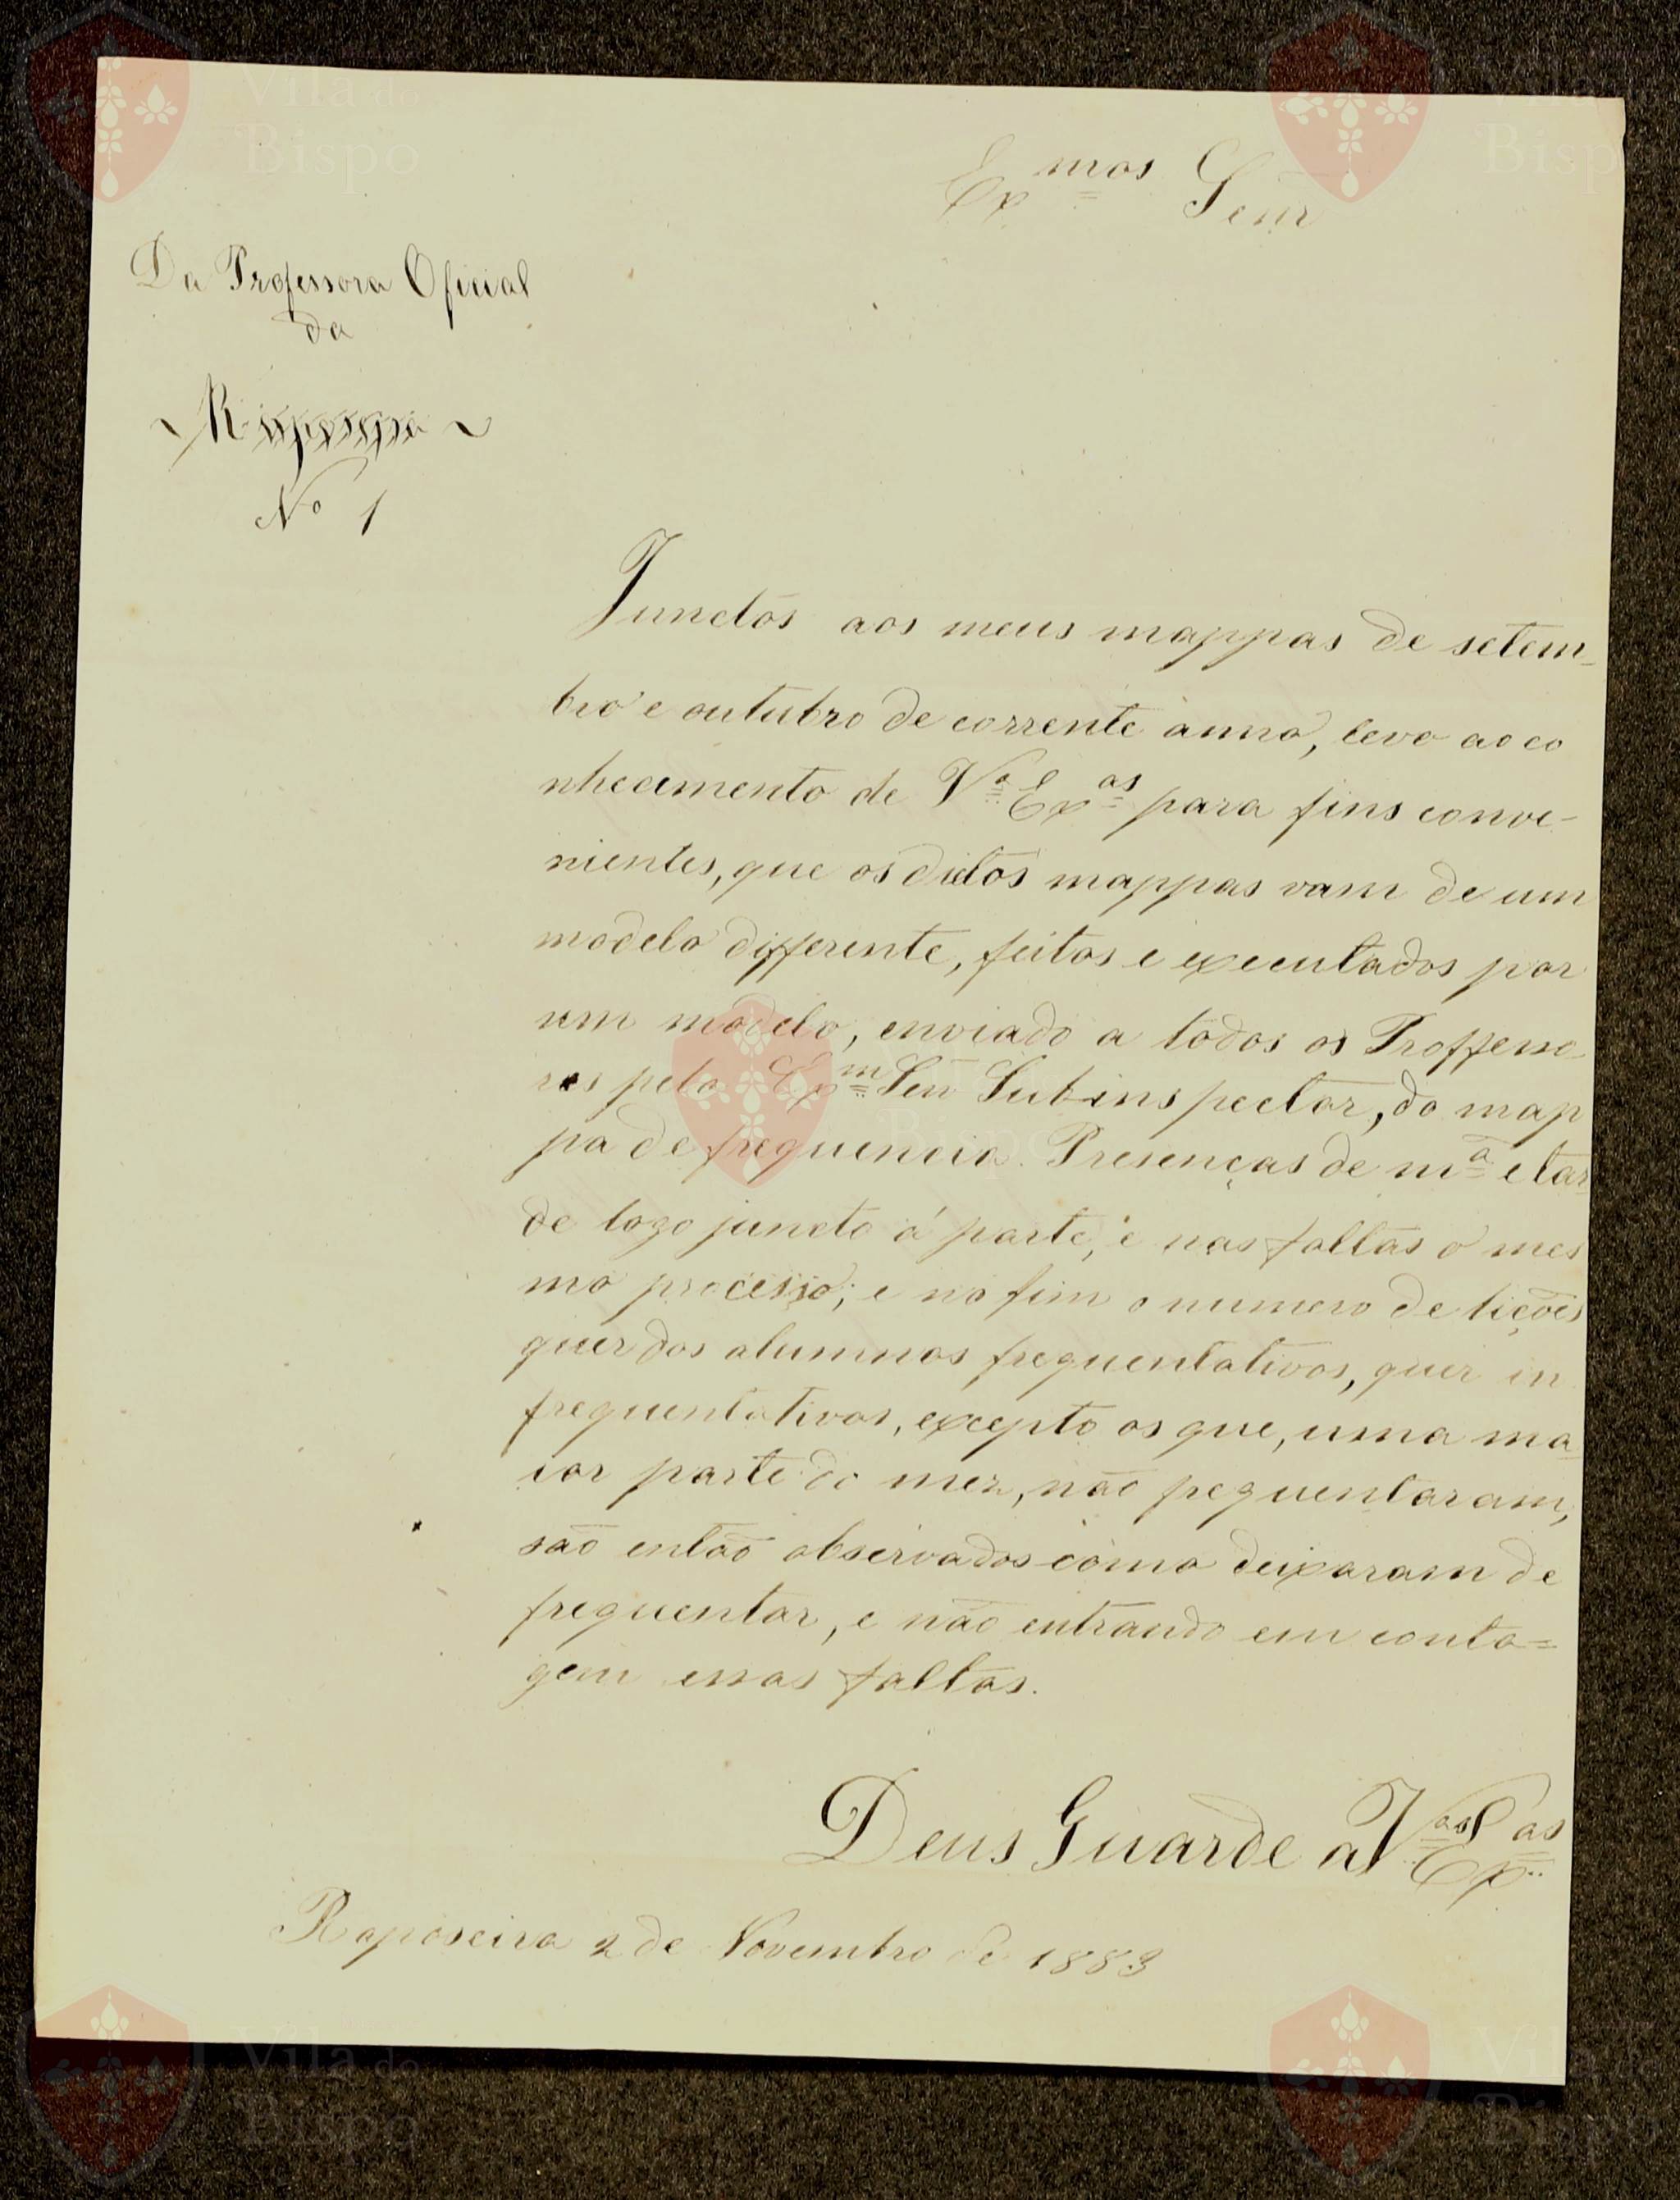 Exmos Senr
Da Professora Oficial
da
Nº 1
Junctos aos meus mappas de setem-
bro e outubro de corrente anno, levo ao co
nhecimento de Vas Exas para fins conve-
nientes, que os dictos mappas vam de um
modelo differente, feitos e executados por
um modelo, enviado a todos os Proffesso
res pelo Exm Senr Subinspector, do map
pa de frequencia. Presenças de mã e tar
de logo juncto á parte, e nas faltas o mes
mo processo; e no fim o numero de lições
quer dos alumnos frequentativos, quer in
frequentativos, excepto os que, uma ma
ior parte do mez, não frequentaram,
são então observados como deixaram de
frequentar, e não entrando em conta=
gem essas faltas.
Deus Guarde a Vas Exas
Raposeira 2 de Novembro de 1883
Vila do
Bispo
Vila do
Bispo